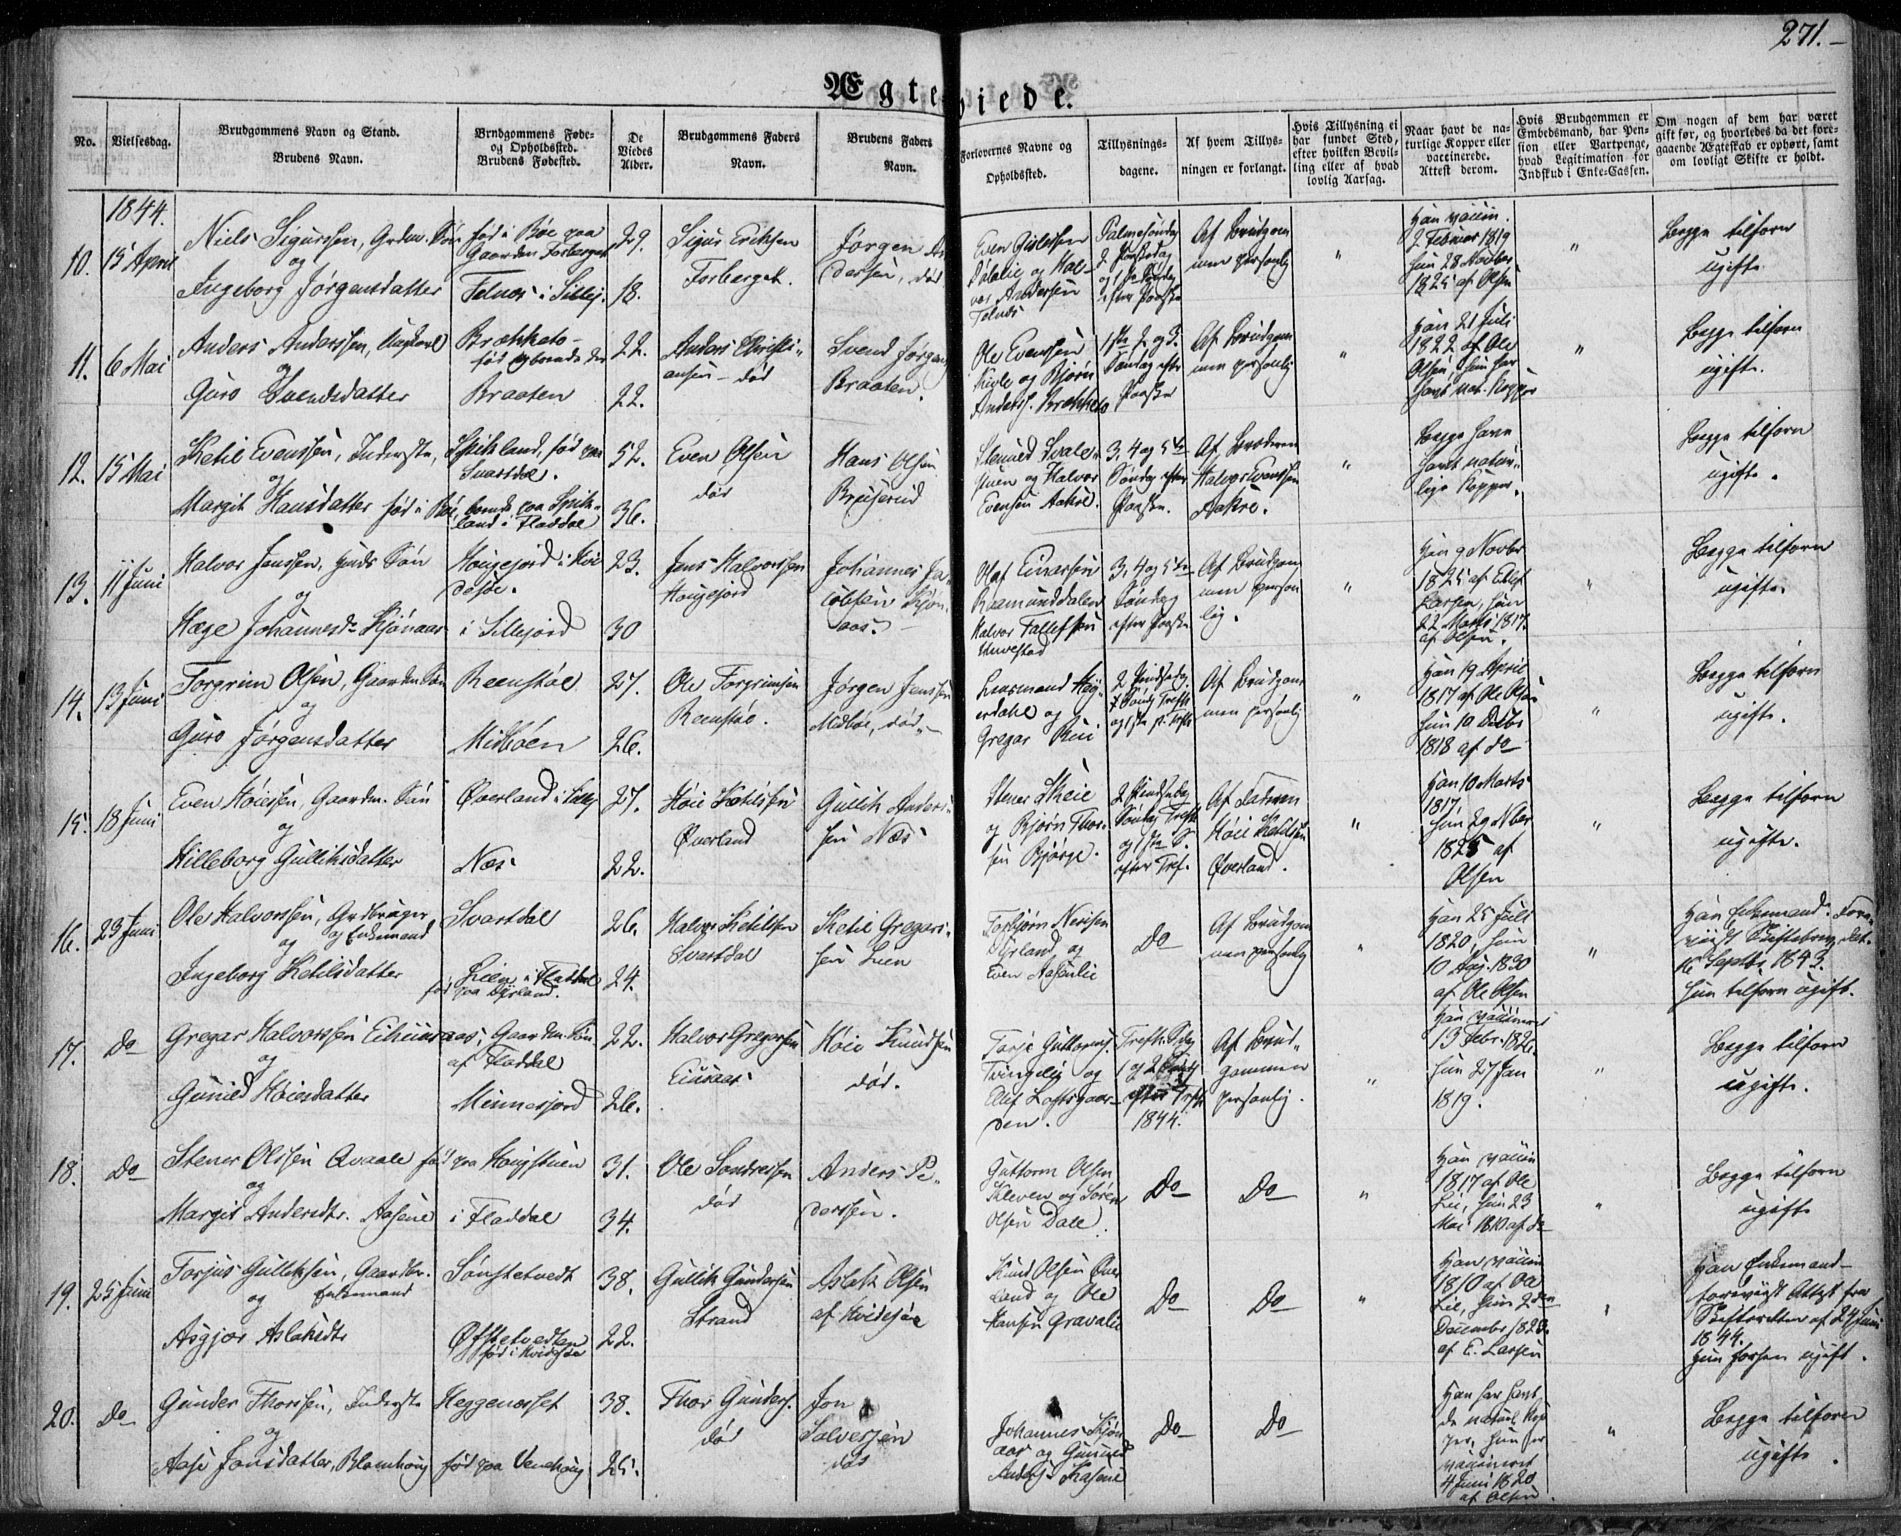 271.
Ægteviede.
No.
Vielsesdag.
Brudgommens Navn og Stand.
Brudens Navn.
Brudgommens Føde-
og Opholdssted.
Brudens Fødested.
De
Viedes
Alder.
Brudgommens Faders
Navn.
Brudens Faders
Navn.
Forlovernes Navne og
Opholdssted.
Tillysnings-
dagene.
Af hvem Tillys-
ningen er forlangt.
Hvis Tillysning ei
har fundet Sted,
efter hvilken Bevil-
ling eller af hvad
lovlig Aarsag.
Naar havt de na-
turlige Kopper eller
vaccinerede.
Attest derom.
Hvis Brudgommen er
Embedsmand, har Pen-
sion eller Vartpenge,
hvad Legitimation for
Indskud i Enke-Cassen.
Om nogen af dem har været
gift før, og hvorledes da det fore-
gaaende Ægteskab er ophørt, samt
om lovligt Skifte er holdt.
1844.
10. 15 April
Niels Sigurssen, Grdm. Søn
og
Ingeborg Jørgensdatter
fød i Bøe paa
Gaarden Forberget
Telnæs i Sillej.
29.
18.
Sigur Eriksen
Forberget.
Jørgen
dersen, død
Even Gislessen
og Hal-
vor Andersen
Telnæs
Palmesøndag
2 Paaskedag
og 1ste Søndag
efter Paaske
Af Brudgom
men personlig
"
Han vaccin.
2 Februar 1819
Hun 28 Novber
1825 af Olsen
"
Begge tilforn
ugifte
11. 6 Mai
Anders Anderssen, Ungkarl
og
Guro Svendsdatter
Brækketo-
fød og boende der
Braaten
22.
22.
Anders Christi-
ansen - død
Svend Jørgens
Braaten.
Ole Evenssen
og Bjørn
Anderss. Brækketo
1ste 2 og 3.
Søndag efter
Paaske
Af Brudgom
men personlig
"
Han 21 Juli
1822 af Ole
Olsen, Hun har
havt nat. Kopper
"
Begge tilforn
ugifte.
12. 15 Mai
Ketil Evenssen, Inderste,
og
Margit Hansdatter fød i Bøe,
Spirkland, fød paa
Svartdal.
boende paa Spirk-
land i Fladdal
52.
36.
Even Olsen
død
Hans Olsen
Bruserud
og Halvor
Evensen Aakre.
3, 4 og 5te
Søndag efter
Paaske.
Af Broderen
Halvor Evenssen
Aakre.
"
Begge have
havt natur-
lige Kopper.
Begge tilforn
ugifte.
13. 11 Juni
Halvor Jenssen, Grds Søn
og
Hæge Johannesd. Kjønaas
Hougejord i Hvi
desøe.
i Sillejord
23.
30
Jens Halvorssen
Hougejord
Johannes Ja-
cobsen Kjøn-
aas.
Olaf Einarsen
Halvor Tallefsen
3, 4 og 5te
Søndag
efter Paaske
Af Brudgom
men person
lig.
"
Han 9 Novbr
1825 af Edlef
Larsen, Hun
22 Marts 1817.
af Olsen.
"
Begge tilforn
ugifte.
14. 13 Juni
Torgrim Olsen, Gaardm. Søn
og
Guro Jørgensdatter
Reenstøl
Midbøen
27.
26.
Ole Torgrimsen
Reenstøl.
Jørgen Jenssen
Midbøe, død.
Lensmand Høy-
erdahl og
Gregar Rui
2 Pindsedag,
Søndg Trefh.
og 1ste S. Trefh
Af Brudgom
men personlig
"
Han 19 April
1817 af Ole Olsen
Hun 10 Octbr
1818 af do
"
Begge tilforn
ugifte.
15. 18 Juni
Even Høiessen, Gaardm. Søn
og
Hilleborg Gulliksdatter
Øverland i Sillej
Næs
27.
22.
Høie Ketilssen
Øverland
Gullik Anders-
sen Næs
Stener Skeie
og Bjørn Thor-
sen Bjørge.
2 Pindsedag
Søndag Trefh
og 1ste S.
efter Tref.
Af Faderen
Høie Ketilsen
Øverland.
"
Han 10 Marts
1817.
Hun 29 Nber
1825 af
Olsen
"
Begge tilforn
ugifte.
16. 23 Juni
Ole Halvorssen, Grdbruger
og Enkemand
og
Ingeborg Ketilsdatter
Svartdal
Lien i Fladdal
fød paa Dyrland.
26.
24.
Halvor Ketilsen
Svartdal
Ketil Gregars-
sen Lien
Torbjørn Nerisen
Dyrland og
Even Aasenlie
Do
Af Brudgom
men personlig
"
Han 25 Juli
1820, Hun
10 Aug. 1830
af Ole Olsen
"
Han Enkemand. Fore-
viist Skiftebrev dat.
16 Septbr 1843.
Hun tilforn ugift.
17. Do
Gregar Halvorssen Eikuns aas, Gaardm. Søn
og
Gunild Høiesdatter
af Fladdal
Minnesjord
22.
26.
Halvor Gregersen
Høie Knudsen
død.
Torje Guttorms.
Tvingelig og
Olif Loftsgaar-
den.
Trefh. Sdag
1 og 2 Søndg
efter Trefh
1844.
Af Brud-
gommen
personlig.
"
Han vaccineret
13 Febr. 1826.
Hun 27 Jan
1819.
"
Begge tilforn
ugifte.
18. Do
Stener Olssen Qvaale fød paa Haugstuen
og
Margit Andersdtr. Aasene i Fladdal
31.
34.
Ole Sondressen
død
Anders Pe-
derssen.
Guttorm Olsen
Kleven og Søren
Olsen Dale.
Do
Do
"
Han vaccin
1817 af Ole
Lie, Hun 23
Mai 1810 af do
"
Begge tilforn
ugifte
19. 25 Juni
Torjus Gulliksen, Gaardbr.
og Enkemand
Asgjær Aslaksdtr
Sønstetvedt
Øfstetvedten
fød i Hvidesøe
38.
22.
Gullik Gundersen
Strand
Aslak Olsen
af Hvidesøe
Knud Olsen Øver
land og Ole
Hansen Gravalie
Do
Do
"
Han vaccin
1810 af Ole
Lie, Hun 2den
December 1823
af E. Larsen
"
Han Enkemand-
foreviist Attest fra
Skifteretten af 24 Juni
1844.
Hun forhen ugift.
20. Do
Gunder Thorssen, Inderste
og
Aase Jonsdatter, Blomhoug
Heggenesset
fød paa Venehoug
38.
25.
Thor Gunders.
død
Jon
Salvesen
død
Johannes Kjøn
aas og Gunnar
Anders. Aasene
Do
Do
Han har havt
de naturl. Kop
per, Hun er
vaccineret
4 Juni 1820
af Olsen.
"
Begge tilforn
ugifte.